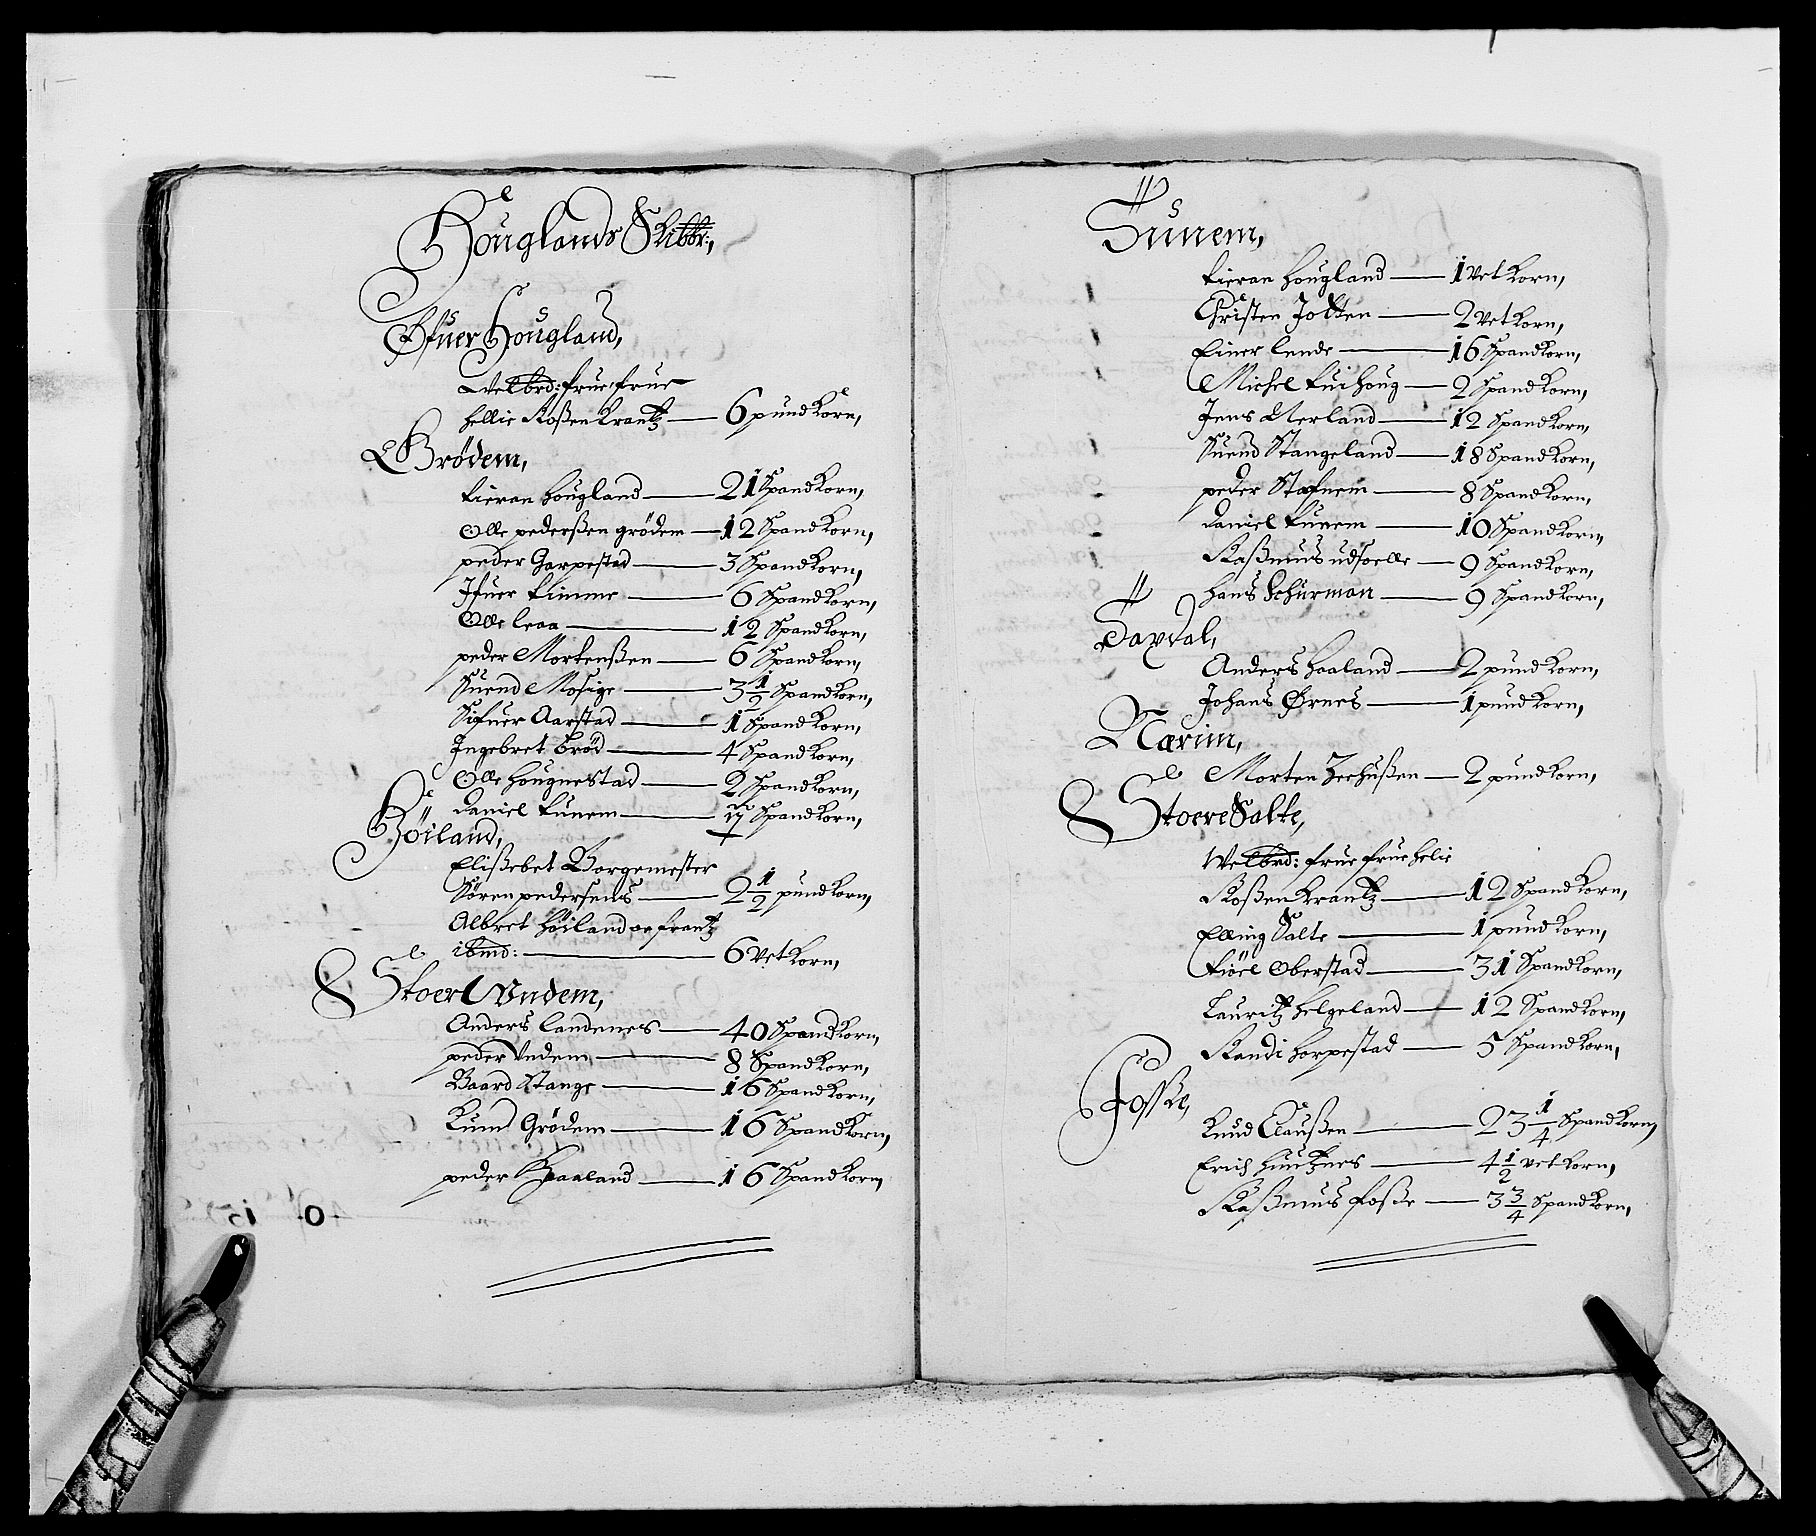 Houglands Skibbr:,
Ofuer Hougland,
Velbrd: frue, frue
Hellie Roßenkrantz — 6 pund korn,
Grødem,
Tieran Hougland — 21 Spand korn,
Olle pederßen grødem — 12 Spand korn,
peder Garpestad — 3 Spand korn,
Ifuer Timme — 6 Spand korn,
Olle leaa — 12 Spand korn,
peder Mortenßen — 6 Spand korn,
Suend Mosige — 3 1/2 Spand korn,
Sifuer Aarstad — 1 Spand korn,
Ingebret Brød — 4 Spand korn,
Olle Hougnestad — 2 Spand korn,
Daniel Tunem — Spand korn,
Höiland,
Elißebet Borgemester
Søren pedersens — 2 1/2 pund korn,
Albret Höiland oc frantz
ibmd: — 6 Vet korn,
Stoer Vndem,
Anders landenes — 40 Spand korn,
peder Vndem — 8 Spand korn,
Baard Stange — 16 Spand korn,
Kund Grødem — 16 Spand korn,
peder Haaland — 16 Spand korn,
Tunem,
Tieran Hougland — 1 Vet korn,
Christen Jolten — 2 Vet korn,
Einer lende — 16 Spand korn,
Michel Tuihoug — 2 Spand korn,
Jens Aerland — 12 Spand korn,
Suend Stangeland — 18 Spand korn,
peder Stafnem — 8 Spand korn,
Daniel Tunem — 10 Spand korn,
Raßmus udsolle — 9 Spand korn,
Hans Schurman — 9 Spand korn,
Taxdal,
Anders Haaland — 2 pund korn,
Johans Ørnes — 1 pund korn,
Nærim,
Morten Zeehußen — 2 pund korn,
Stoere Salte,
Welbrd: frue frue Helie
Roßenkrantz — 12 Spand korn,
Elling Salte — 1 pund korn,
Tiöel Oberstad — 31 Spand korn,
Lauritz Helgeland — 12 Spand korn,
Randi Horpestad — 5 Spand korn,
Foßse,
Knud Claußen — 23 1/4 Spand korn,
Erich — 4 1/2 Vet korn,
Raßmus foße — 3 3/4 Spand korn,